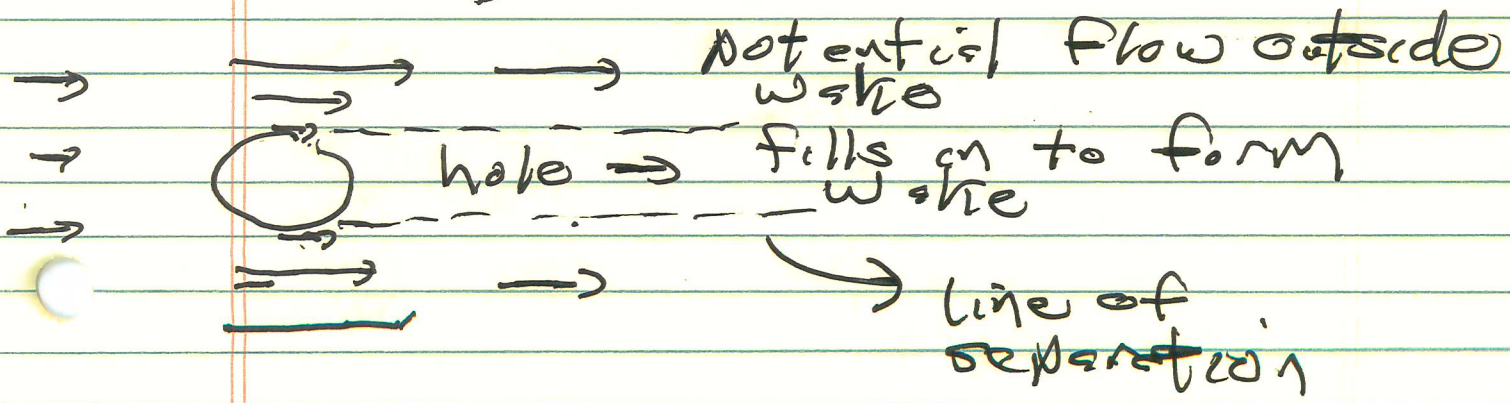 potential flow outside
wake
hole → fills in to form
wake
line of
separation